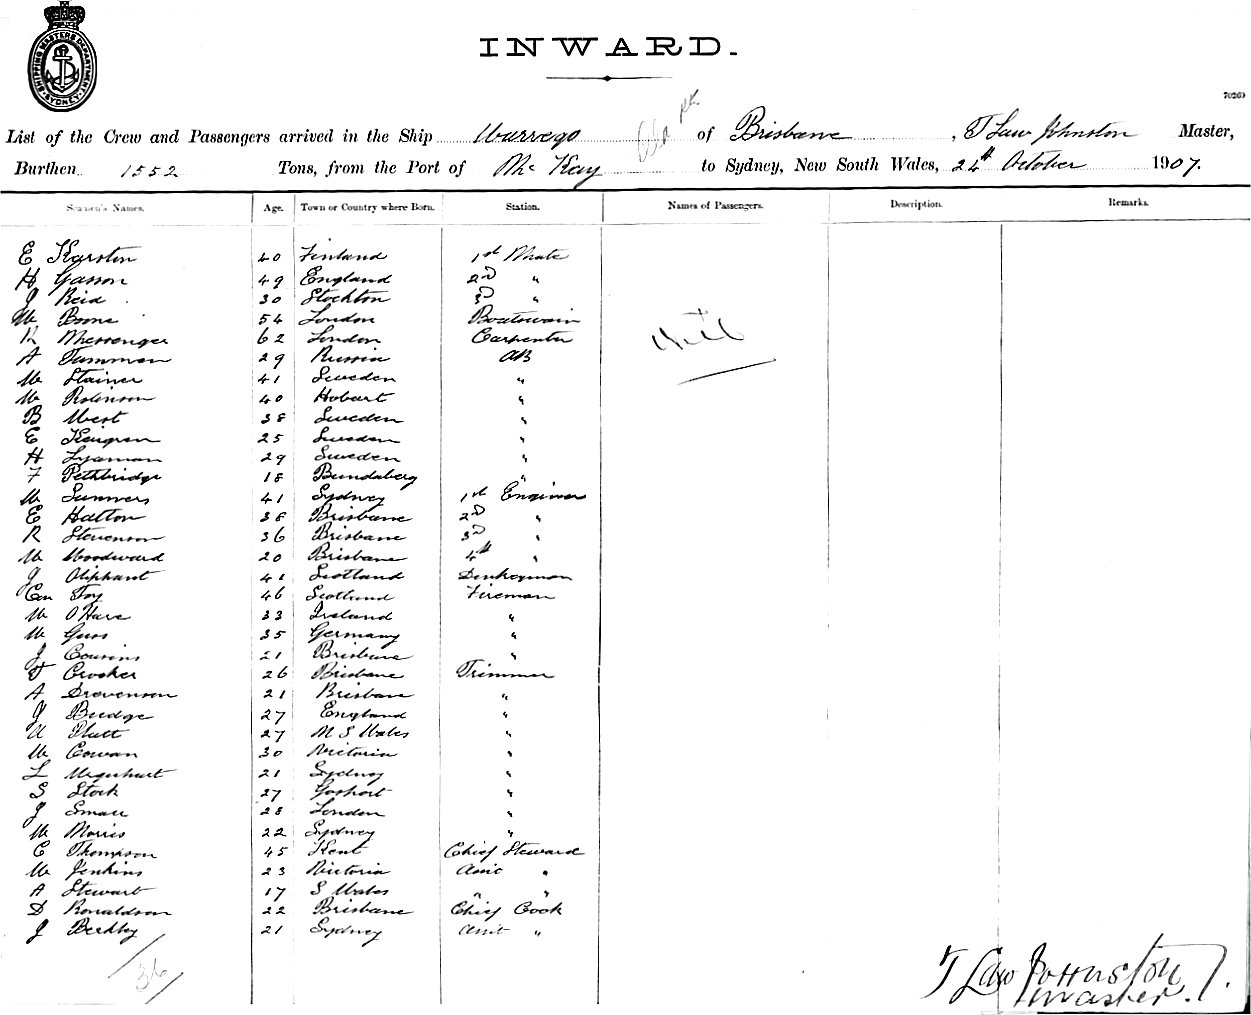 SHIPPING MASTERS DEPARTMENT SYDNEY
INWARD.
70269
List of the Crew and Passengers arrived in the Ship Warrego of Brisbane, T Law Johnston Master,
Burthen 1552 Tons, from the Port of Mc Kay to Sydney, New South Wales, 24th October 1907.
Seamen's Names. Age. Town or Country where Born. Station. Names of Passengers. Description. Remarks.
E Karston 40 Finland 1st Mate
H Gasson 49 England 2nd "
J Reid 30 Stockton 3D "
W Boone 54 London Boatswain
R Messenger 62 London Carpenter
Nil
A Tammon 29 Russia AB
W Stainer 41 Sweden "
W Robinson 40 Hobart "
B West 38 Sweden "
E 25 Sweden "
H Lyaman 29 Sweden "
F Pethbridge 18 Bundaberg "
W Summers 41 Sydney 1st Engineer
E Hatton 38 Brisbane 2nd "
R Stevenson 36 Brisbane 3rd "
W Woodward 20 Brisbane 4th "
J Oliphant 41 Scotland Donkeyman
Toy 46 Scotland Fireman
W O'Hare 33 Ireland "
W Guss 35 Germany "
J Cousins 21 Brisbane "
T Crocker 26 Brisbane Trimmer
A Stevenson 21 Brisbane "
J Budge 27 England "
A Platt 27 N S Wales "
W Cowan 30 Victoria "
L Urquhart 21 Sydney "
S Stock 27 Gosport "
J Small 28 London "
W Morris 22 Sydney "
C Thompson 45 Kent Chief Steward
W Jenkins 23 Victoria Assit "
A Stewart 17 S Wales " "
D Ronaldson 22 Brisbane Chief Cook
J Berkley 21 Sydney Assit "
36
T Law Johnston
Master.